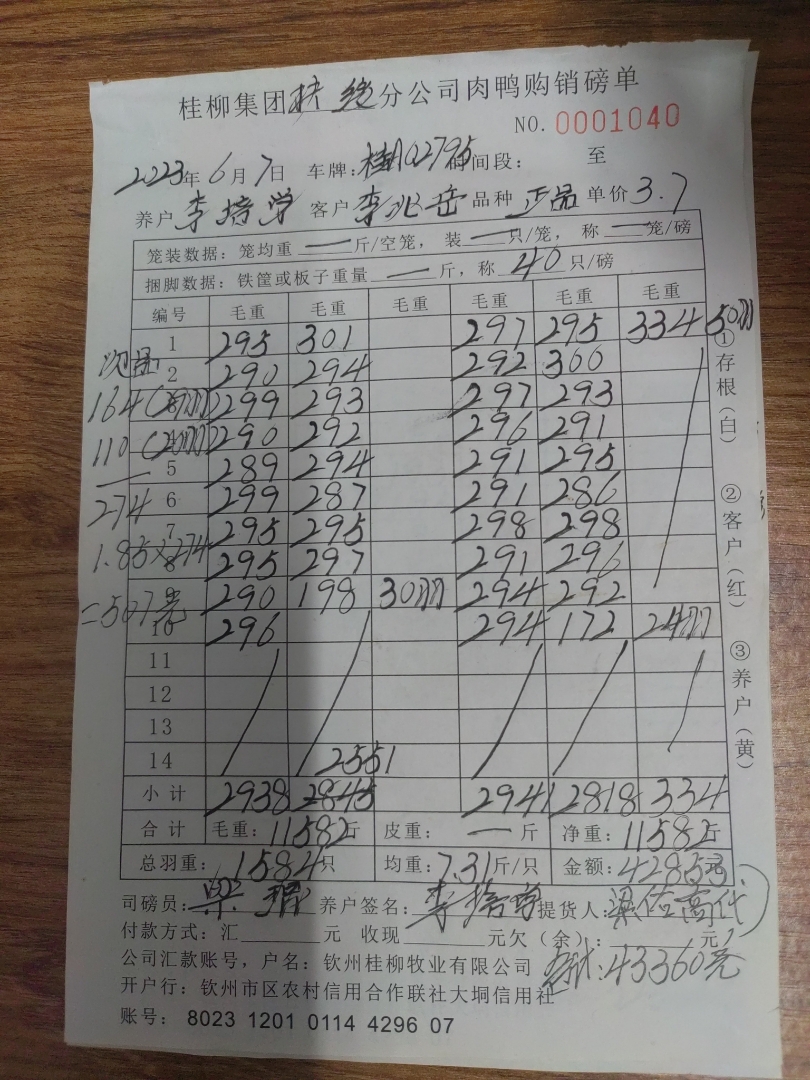 桂柳集团扶绥分公司肉鸭购销磅单
NO. 0001040
2023年6月7日 车牌:桂J02795 时间段: 至
养户 李培学 客户 李兆岳 品种 正品 单价 3.7
笼装数据: 笼均重 一 斤/空笼, 装 一 只/笼, 称 一 笼/磅
捆脚数据: 铁筐或板子重量 一 斤, 称 40 只/磅
编号 毛重 毛重 毛重 毛重 毛重 毛重
1 295 301 297 295 334 50羽
次品:
2 290 294 292 300
164 299 293 297 293
110 290 292 296 291
5 289 294 291 295
274
6 299 287 291 286
7 295 295 298 298
1.85×274
8 295 297 291 296
290 198 30羽 294 292
=507元
10 296 294 172 24羽
11
12
13
14 2551
小计 2938 2845 2941 2818 334
合计 毛重: 11582斤 皮重: 一 斤 净重: 11582斤
总羽重: 1584只 均重: 7.31斤/只 金额: 42853元
司磅员: 养户签名: 李培学 提货人:
付款方式: 汇 元 收现 元欠(余): 元
公司汇款账号, 户名: 钦州桂柳牧业有限公司
总计: 43360元
开户行: 钦州市区农村信用合作联社大垌信用社
账号: 8023 1201 0114 4296 07
①存根(白)
②客户(红)
③养户(黄)